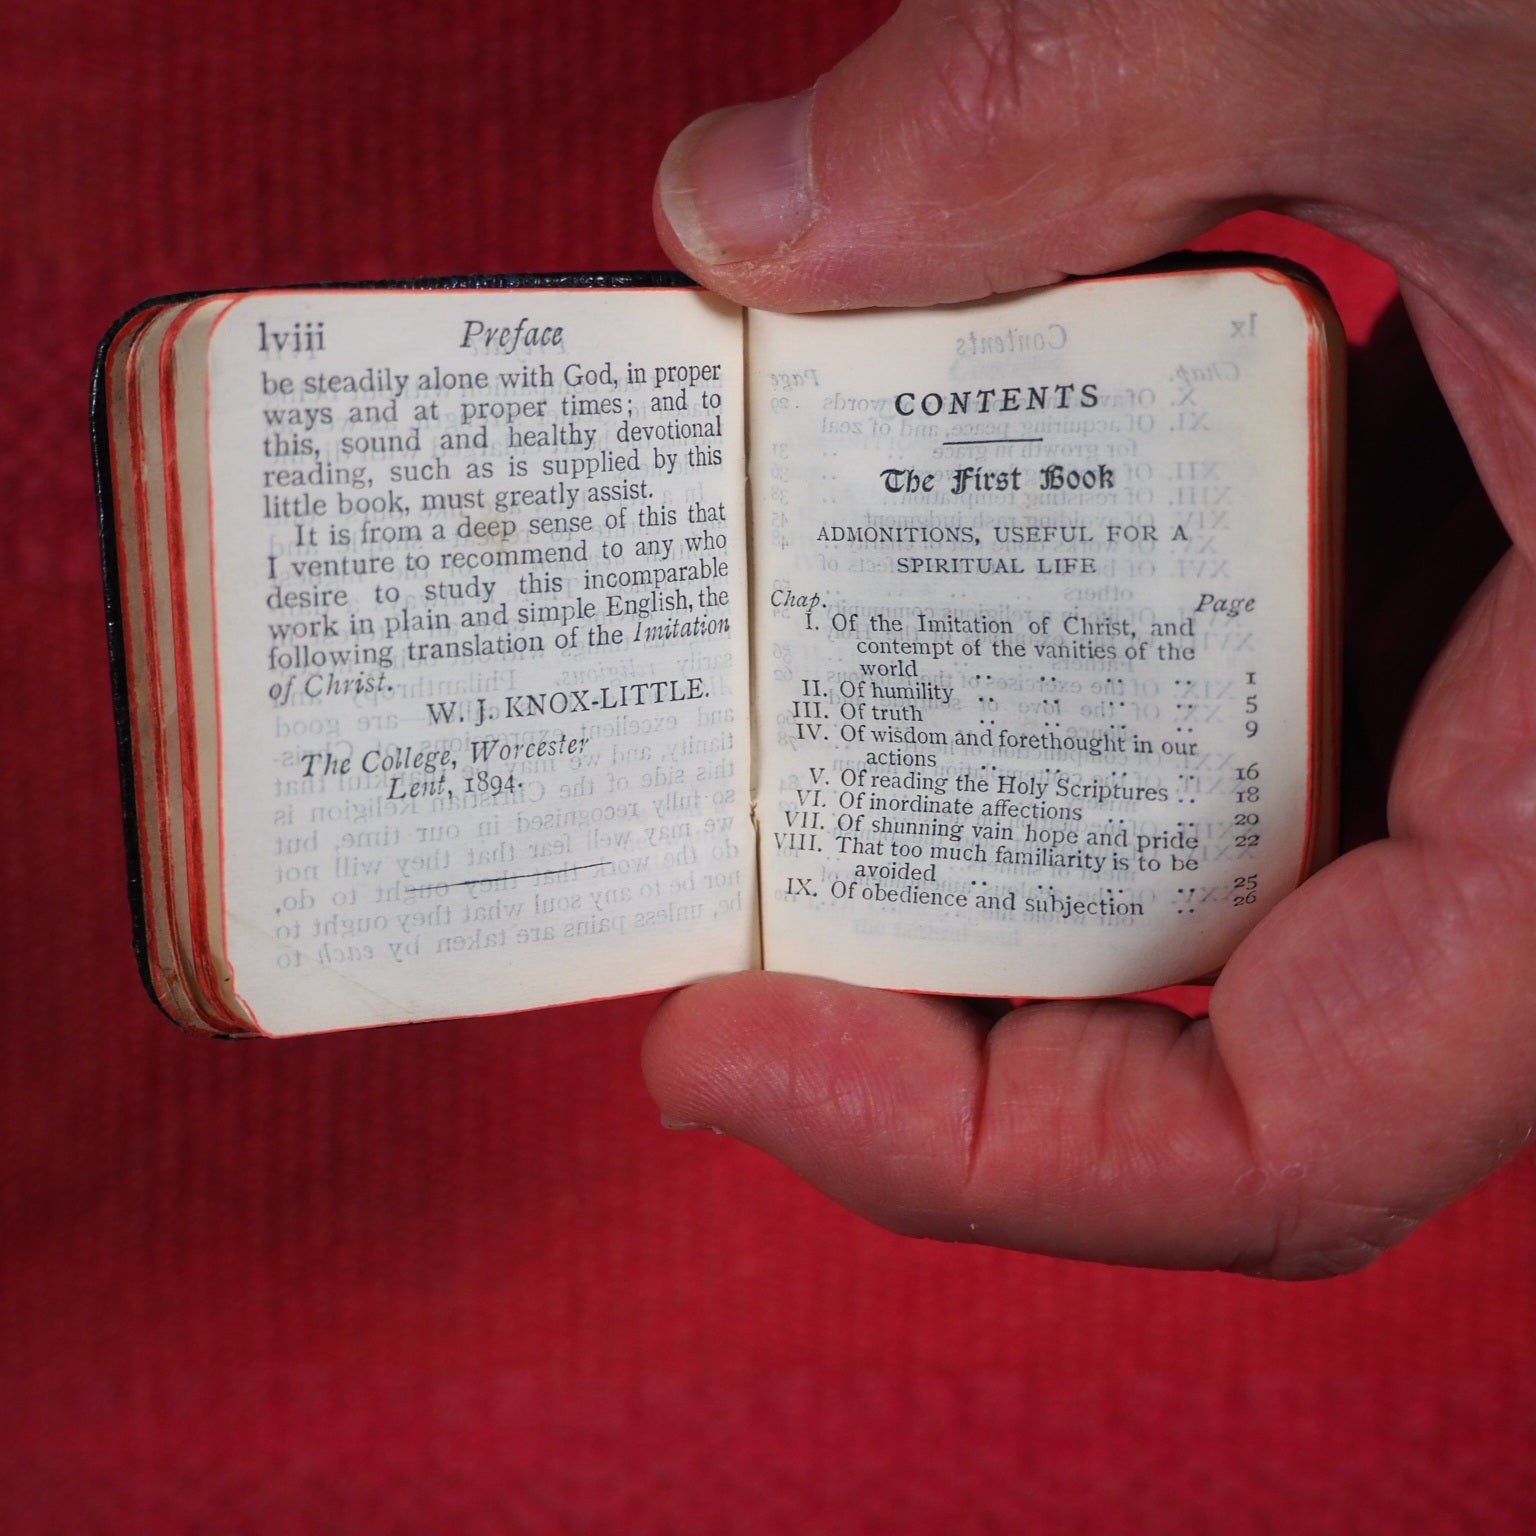 lviii Preface
be steadily alone with God, in proper
ways and at proper times; and to
this, sound and healthy devotional
reading, such as is supplied by this
little book, must greatly assist.
It is from a deep sense of this that
I venture to recommend to any who
desire to study this incomparable
work in plain and simple English, the
following translation of the Imitation
of Christ.
W. J. KNOX-LITTLE.
The College, Worcester
Lent, 1894.
CONTENTS
The First Book
ADMONITIONS, USEFUL FOR A
SPIRITUAL LIFE
Chap. Page
I. Of the Imitation of Christ, and
contempt of the vanities of the
world .. .. .. .. 1
II. Of humility .. .. .. .. 5
III. Of truth .. .. .. .. 9
IV. Of wisdom and forethought in our
actions .. .. .. .. 16
V. Of reading the Holy Scriptures .. 18
VI. Of inordinate affections .. .. 20
VII. Of shunning vain hope and pride 22
VIII. That too much familiarity is to be
avoided .. .. .. .. 25
IX. Of obedience and subjection .. 26